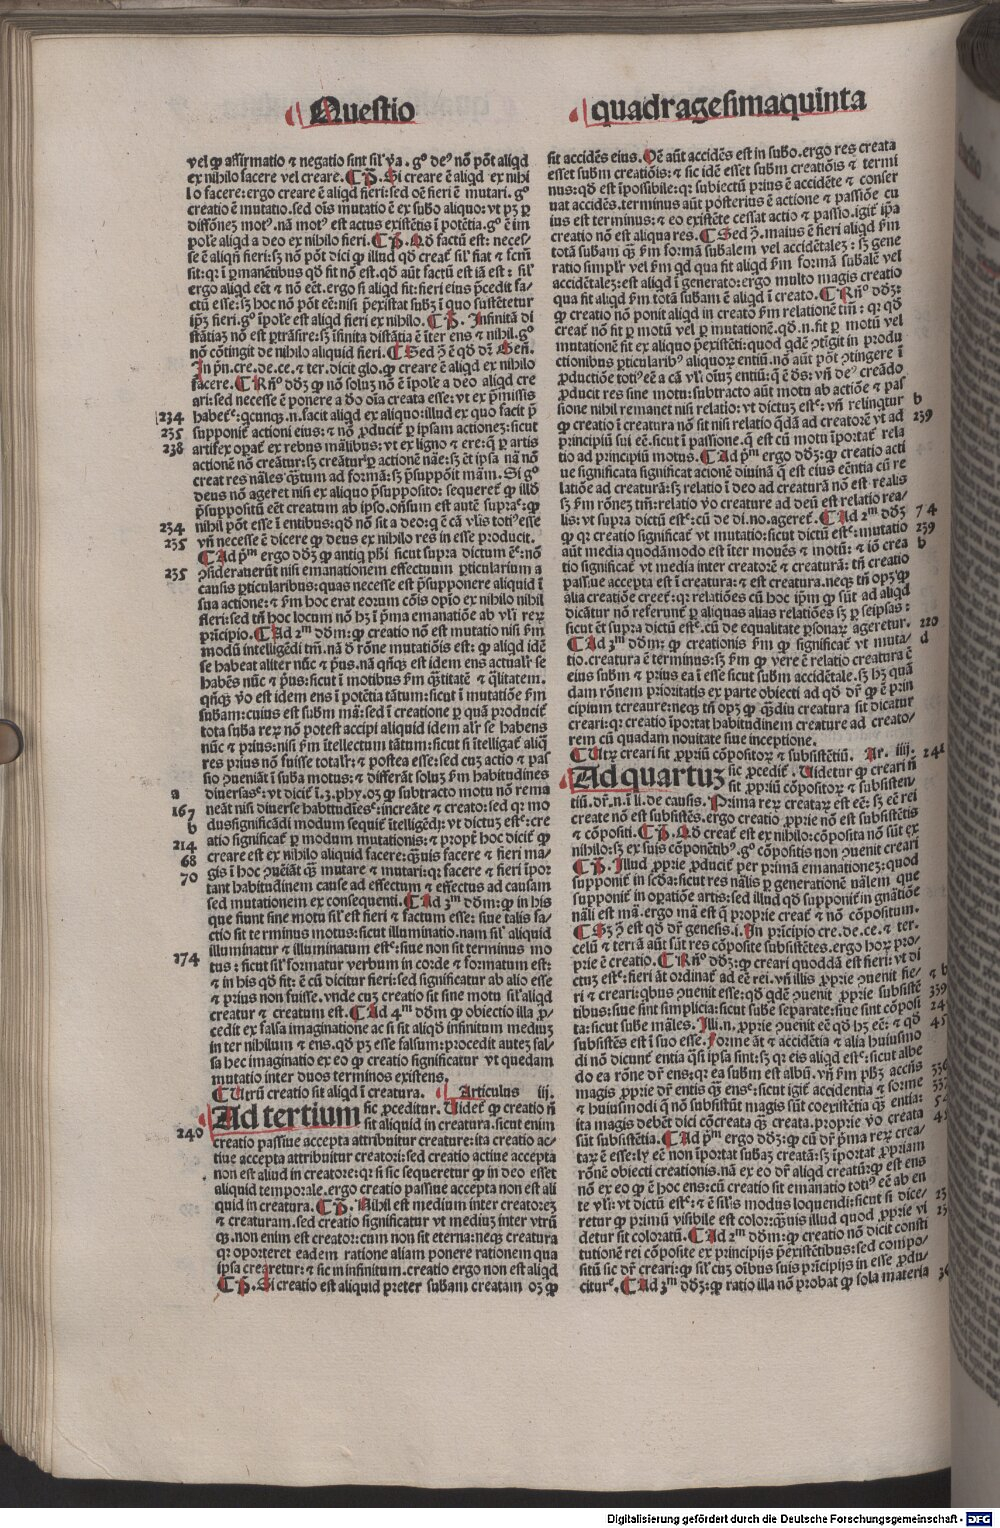 Questio
quadragesimaquinta
vel ꝙ affirmatio ⁊ negatio sint sil' ṽa. g° de⁹ nō pōt aliqd
ex nihilo facere vel creare. ¶ P̄. Si creare ē aliqd ex nihi
lo facere: ergo creare ē aliqd fieri: sed oē fieri ē mutari. g°
creatio ē mutatio. sed oīs mutatio ē ex subo aliquo: vt pꝫ ꝑ
diffōneꝫ mot⁹. nā mot⁹ est actus existētis ī potētia. g° ē im
pole aliqd a deo ex nihilo fieri. ¶ P̄. Qd̄ factū est: neces/
se ē aliqn̄ fieri: sꝫ nō pōt dici ꝙ illud qd̄ creat̄ sil' fiat ⁊ fcm̄
sit: qꝛ ī ꝑmanētibus qd̄ fit nō est. qd̄ aūt factū est iā est: sil'
ergo aliqd eēt ⁊ nō eēt. ergo si aliqd fit: fieri eius p̄cedit fa/
ctū esse: sꝫ hoc nō pōt eē: nisi p̄existat subꝫ ī quo sustētetur
ipꝫ fieri. g° īpole est aliqd fieri ex nihilo. ¶ P̄. Infinitā di
stātiaꝫ nō est ꝑtrāsire: sꝫ īfinita distātia ē iter ens ⁊ nihil. g°
nō cōtingit de nihilo aliquid fieri. ¶ Sed ꝯ̄ ē qd̄ dr̄ Geñ.
In pn̄. cre. de. ce. ⁊ ter. dicit glo. ꝙ creare ē aliqd ex nihilo
facere. ¶ Rn̄° dꝫ ꝙ nō soluꝫ nō ē īpole a deo aliqd cre
ari: sed necesse ē ponere a do oīa creata esse: vt ex p̄missis
234 habet̄: qcunqꝫ. n. facit aliqd ex aliquo: illud ex quo facit p̄
235 supponit̄ actioni eius: ⁊ nō ꝓducit̄ ꝑ ipsam actionez: sicut
236 artifex opat̄ ex rebus nālibus: vt ex ligno ⁊ ere: q̄ ꝑ artis
actionē nō creātur: sꝫ creātur ꝑ actionē nāe: sꝫ ēt ipsa nā nō
creat res nāles q̄tum ad formā: sꝫ p̄suppōit mām. Si g°
deus nōn ageret nisi ex aliquo p̄supposito: sequeret̄ ꝙ illd̄
p̄suppositū eēt creatum ab ipso. on̄sum est autē supra: ꝙ
234 nihil pōt esse ī entibus: qd̄ nō sit a deo: q̄ ē cā vlis toti⁹ esse
235 vn̄ necesse ē dicere ꝙ deus ex nihilo res in esse producit.
¶ Ad pm̄ ergo dꝫ ꝙ antiq phī sicut supra dictum ē: nō
235 ꝯsiderauerūt nisi emanationem effectuum ꝑticularium a
causis ꝑticularibus: quas necesse est p̄supponere aliquid ī
sua actione: ⁊ fm̄ hoc erat eorum cōis opīo ex nihilo nihil
fieri: sed tn̄ hoc locum nō hꝫ ī p̄ma emanatiōe ab vli reꝝ
prīcipio. ¶ Ad 2m dōm: ꝙ creatio nō est mutatio nisi fm̄
modū intelligēdi tm̄. nā d̄ rōne mutatiōis est: ꝙ aliqd idē
se habeat aliter nūc ⁊ p̄us. nā qn̄qꝫ est idem ens actualꝛ se
habēs nūc ⁊ p̄us: sicut ī motibus fm̄ q̄titatē ⁊ q̄litatem.
qn̄qꝫ ṽo est idem ens ī potētia tātum: sicut ī mutatiōe fm̄
subam: cuius est subm mā: sed ī creatione ꝑ quā producit̄
tota suba reꝝ nō potest accipi aliquid idem alꝛ se habens
nūc ⁊ prius: nisi fm̄ ītellectum tātum: sicut si ītelligat̄ aliq̄
res prius nō fuisse totalꝛ: ⁊ postea esse: sed cuꝫ actio ⁊ pas
sio ꝯueniāt ī suba motus: ⁊ differāt soluꝫ fm̄ habitudines
a diuersas: vt dicit̄ ī. 3. phy. oꝫ ꝙ subtracto motu nō rema
167 neāt nisi diuerse habitudīes: increāte ⁊ creato: sed qꝛ mo
b dussignificādi modum sequit̄ ītelligēdi: vt dictuꝫ est: cre
214 atio significat̄ ꝑ modum mutationis: ⁊ propt̄ hoc dicit̄ ꝙ
68 creare est ex nihilo aliquid facere: q̄uis facere ⁊ fieri ma/
70 gis ī hoc ꝯueniāt q̄ mutare ⁊ mutari: qꝛ facere ⁊ fieri īpor
tant habitudinem cause ad effectum ⁊ effectus ad causam
sed mutationem ex consequenti. ¶ Ad 3m dōm: ꝙ in his
que fiunt sine motu sil' est fieri ⁊ factum esse: siue talis fa/
ctio sit terminus motus: sicut illuminatio. nam sil' aliquid
illuminatur ⁊ illuminatum est: siue non sit terminus mo
174 tus: sicut sil' formatur verbum in corde ⁊ formatum est:
⁊ in his qd̄ fit: ē cū dicitur fieri: sed significatur ab alio esse
⁊ prius non fuisse. vnde cuꝫ creatio sit sine motu sil' aliqd
creatur ⁊ creatum est. ¶ Ad 4m dōm ꝙ obiectio illa ꝓ/
cedit ex falsa imaginatione ac si sit aliqd̄ infinitum mediuꝫ
in ter nihilum ⁊ ens. qd̄ pꝫ esse falsum: procedit auteꝫ fal/
sa hec imaginatio ex eo ꝙ creatio significatur vt quedam
mutatio inter duos terminos existens.
¶ Utrū creatio sit aliqd ī creatura. Articulus iij.
Ad tertium sic ꝓceditur. Uidet̄ ꝙ creatio n̄
240 sit aliquid in creatura. sicut enim
creatio passiue accepta attribuitur creature: ita creatio ac/
tiue accepta attribuitur creatori: sed creatio actiue accepta
non est aliud in creatore: qꝛ si sic sequeretur ꝙ in deo esset
aliquid temporale. ergo creatio passiue accepta non est ali
quid in creatura. ¶ P̄. Nihil est medium inter creatoreꝫ
⁊ creaturam. sed creatio significatur vt mediuꝫ inter vtrū
qꝫ. non enim est creator: cum non sit eterna: neqꝫ creatura
qꝛ oporteret eadem ratione aliam ponere rationem qua
ipsa crearetur: ⁊ sic in infinitum. creatio ergo non est aliqd
¶ P̄. Si creatio est aliquid preter subam creatam oꝫ ꝙ
sit accidēs eius. Oē aūt accidēs est in subo. ergo res creata
esset subm creatiōis: ⁊ sic idē esset subm creatiōis ⁊ termi
nus: qd̄ est īpossibile: qꝛ subiectū prius ē accidēte ⁊ conser
uat accidēs. terminus aūt posterius ē actione ⁊ passiōe cu
ius est terminus: ⁊ eo existēte cessat actio ⁊ passio. igit̄ ip̄a
creatio nō est aliqua res. ¶ Sed ꝯ̄. maius ē fieri aliqd fm̄
totā subam q̄ fm̄ formā subalem vel accidētaleꝫ: sꝫ gene
ratio simplꝛ vel fm̄ qd qua fit aliqd fm̄ formā subalē vel
accidētaleꝫ: est aliqd ī generato: ergo multo magis creatio
qua fit aliqd fm̄ totā subam ē aliqd ī creato. ¶ Rn̄° dꝫ:
ꝙ creatio nō ponit aliqd in creato fm̄ relationē tm̄: qꝛ qd̄
creat̄ nō fit ꝑ motū vel ꝑ mutationē. qd̄. n. fit ꝑ motū vel
mutationē fit ex aliquo p̄existēti: quod qdē ꝯtīgit in produ
ctionibus ꝑticularib⁹ aliquoꝝ entiū. nō aūt pōt ꝯtingere ī
ꝓductiōe toti⁹ eē a cā vli oīuꝫ entiū: q̄ ē ds: vn̄ de⁹ creādo
ꝓducit res sine motu: subtracto aūt motu ab actiōe ⁊ pas
sione nihil remanet nisi relatio: vt dictuꝫ est: vn̄ relinqtur b
ꝙ creatio ī creatura nō sit nisi relatio qdā ad creatorē vt ad 239
principiū sui eē. sicut ī passione. q̄ est cū motu īportat̄ rela
tio ad principiū motus. ¶ Ad pm̄ ergo dꝫ: ꝙ creatio acti
ue significata significat actionē diuinā q̄ est eius eēntia cū re
latiōe ad creaturā: sꝫ relatio ī deo ad creaturā nō est realis
sꝫ fm̄ rōneꝫ tm̄: relatio ṽo creature ad deū est relatio rea/
lis: vt supra dictū est: cū de di. no. ageret̄. ¶ Ad 2m dꝫ 74
ꝙ qꝛ creatio significat̄ vt mutatio: sicut dictū est: mutatio 239
aūt media quodāmodo est īter mouēs ⁊ motū: ⁊ iō crea b
tio significat̄ vt media inter creatorē ⁊ creaturā: tn̄ creatio
passiue accepta est ī creatura: ⁊ est creatura. neqꝫ tn̄ opꝫ ꝙ
alia creatiōe creet̄: qꝛ relatiōes cū hoc ip̄m ꝙ sūt ad aliqd
dicātur nō referunt̄ ꝑ aliquas alias relatiōes sꝫ ꝑ seipsas:
sicut ēt supra dictū est. cū de equalitate ꝑsonaꝝ ageretur. 220
¶ Ad 3m dōm: ꝙ creationis fm̄ ꝙ significat̄ vt muta/ d
tio. creatura ē terminus: sꝫ fm̄ ꝙ vere ē relatio creatura ē
eius subm ⁊ prius ea ī esse sicut subm accidētale. sꝫ hꝫ quā
dam rōnem prioritatis ex parte obiecti ad qd̄ dr̄ ꝙ ē prin
cipium tcreaure: neqꝫ tn̄ opꝫ ꝙ q̄diu creatura sit dicatur
creari: qꝛ creatio īportat habitudinem creature ad creato/
rem cū quadam nouitate siue inceptione.
¶ Utꝝ creari sit ꝓpriū cōpositoꝝ ⁊ subsistētiū. Ar. iiij. 241
Ad quartuꝫ sic ꝓcedit̄. Uidetur ꝙ creari n̄
sit ꝓpriū cōpositoꝝ ⁊ subsisten/
tiū. dr̄. n. ī li. de causis. Prima reꝝ creataꝝ est eē: sꝫ eē rei
create nō est subsistēs. ergo creatio ꝓprie nō est subsistētis
⁊ cōpositi. ¶ P̄. Qd̄ creat̄ est ex nihilo: cōposita nō sūt ex
nihilo: sꝫ ex suis cōponētib⁹. g° cōpositis non ꝯuenit creari
¶ P̄. Illud ꝓprie ꝓducit̄ per primā emanationeꝫ: quod
supponit̄ in scd̄a: sicut res nālis ꝑ generationē nālem que
supponit̄ in opatiōe artis: sed illud qd̄ supponit̄ in gn̄atiōe
nāli est mā. ergo mā est q̄ proprie creat̄ ⁊ nō cōpositum.
¶ Sꝫ ꝯ̄ est qd̄ dr̄ genesis. i. In prīcipio cre. de. ce. ⁊ ter.
celū ⁊ terrā aūt sūt res cōposite subsistētes. ergo hoꝝ pro/
prie ē creatio. ¶ Rn̄° dꝫ: ꝙ creari quoddā est fieri: vt di
ctuꝫ est: fieri āt ordinat̄ ad eē rei. vn̄ illis ꝓprie ꝯuenit fie/ ⁊ b
ri ⁊ creari: qbus ꝯuenit esse: qd̄ qdē ꝯuenit ꝓprie subsistē 339
tibus: siue sint simplicia: sicut sube separate: siue sint cōposi 24
ta: sicut sube māles. Illi. n. ꝓprie ꝯuenit eē qd̄ hꝫ eē: ⁊ qd̄ 45
subsistēs est ī suo esse. Forme āt ⁊ accidētia ⁊ alia huiusmo
di nō dicunt̄ entia q̄si ipsa sint: sꝫ qꝛ eis aliqd est: sicut albe
do ea rōne dr̄ ens: qꝛ ea subm est albū. vn̄ fm̄ phꝫ accn̄s 336
magis ꝓprie dr̄ entis q̄ ens: sicut igit̄ accidentia ⁊ forme 337
⁊ huiusmodi q̄ nō subsistūt magis sūt coexistētia q̄ entia: 54
ita magis debēt dici cōcreata q̄ creata. proprie ṽo creata 45
sūt subsistētia. ¶ Ad pm̄ ergo dꝫ: ꝙ cū dr̄ pma reꝝ crea/
taꝝ ē esse: ly eē non īportat subaꝫ creatā: sꝫ īportat ꝓpriam
rōnē obiecti creationis. nā ex eo dr̄ aliqd creatū: ꝙ est ens
nō ex eo ꝙ ē hoc ens: cū creatio sit emanatio toti⁹ eē ab en
te vli: vt dictū est: ⁊ ē silis modus loquendi: sicut si dice/
retur ꝙ primū visibile est color: q̄uis illud quod ꝓprie vi
detur sit coloratū. ¶ Ad 2m dōm: ꝙ creatio nō dicit consti
tutionē rei cōposite ex principijs p̄existētibus: sed compo/
sitū sic dr̄ creari: ꝙ sil' cuꝫ oībus suis prīcipijs in esse ꝓdu/
citur. ¶ Ad 3m dꝫ: ꝙ ratio illa nō probat ꝙ sola materia
Digitalisierung gefördert durch die Deutsche Forschungsgemeinschaft - DFG